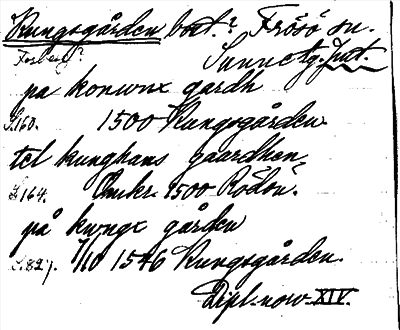 Kungsgården bort.? Frösö sn.
Forberg? Sunne tg. Jmt.
pa konwnx gardh
S.160. 1500 Kungsgården
tel kunghans gaardhen,
S.164. Omkr. 1500 Rödön.
på kwngx gården
S.827. 7/10 1546 Kungsgården.
Dipl. norv. XIV.